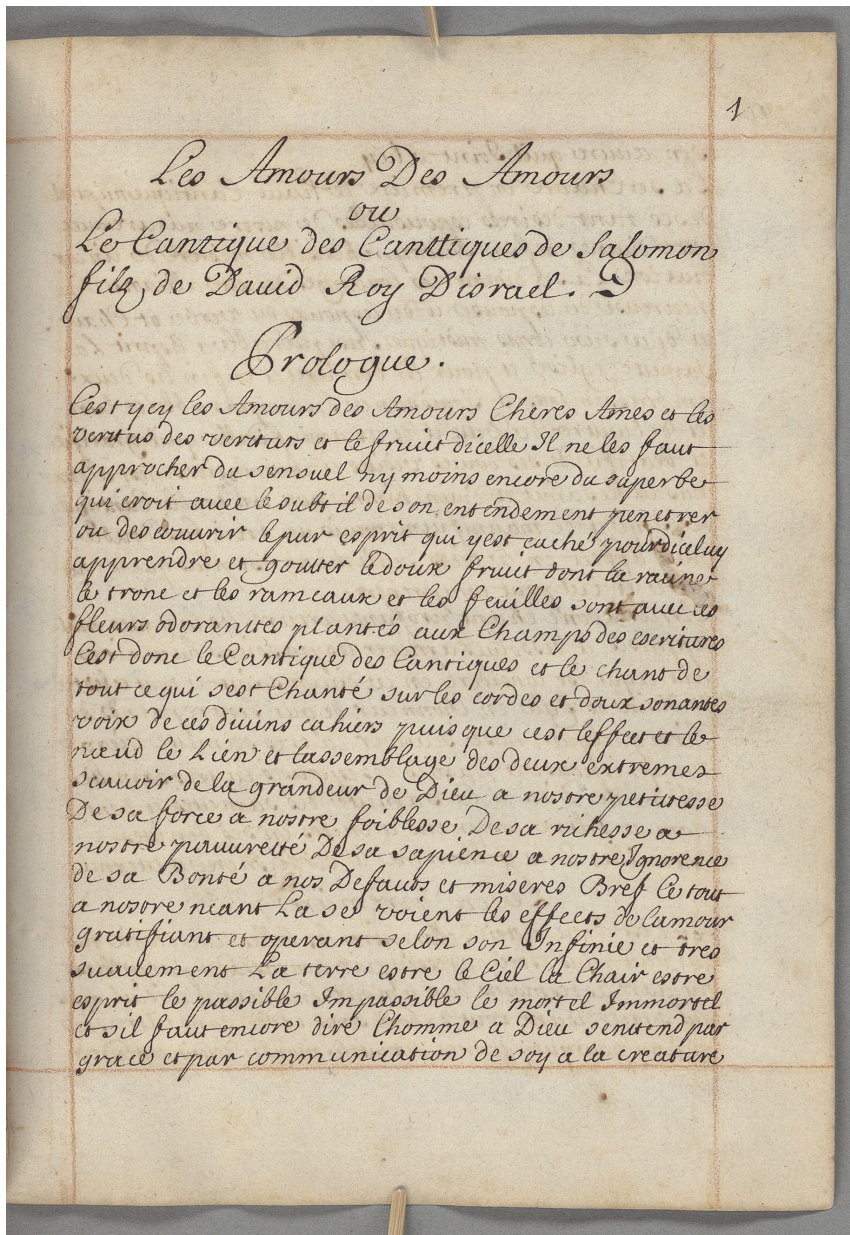 1
Les Amours Des Amours
ou
Le Cantique des Canttiques de Salomon
filz de Dauid Roy Disrael.
Prologue.
Cest ycy les Amours des Amours Cheres Ames et les
veritus des verituts et le fruict dicelle Il ne les faut
approcher du sensuel ny moins encore du superbe
qui croit auec le subtil de son entendement penetrer
ou descouurir le pur esprit qui y est caché pour diceluy
apprendre et goutter le doux fruict dont la racine
le tronc et les rameaux et les feuilles sont auec ses
fleurs odorantes plantés aux Champs des escritures
Cest donc le Cantique des Cantiques et le chant de
tout ce qui sest Chanté sur les cordes et doux sonantes
voix de ces diuins cahiers puis que cest leffect et le
nœud le Lien et lassemblage des deux extremes
scauoir de la grandeur de Dieu a nostre petitesse
De sa force a nostre foiblesse De sa richesse a
nostre pauureté De sa sapience a nostre Ignorence
de sa Bonté a nos Defauts et miseres Bref le tout
a nostre neant La se voient les effects de lamour
gratifiant et operant selon son Infinie et tres
suauement La terre estre le Ciel la Chair estre
esprit le passible Impassible le mortel Immortel
et sil faut encore dire Lhomme a Dieu sentend par
grace et par communication de soy a la creature